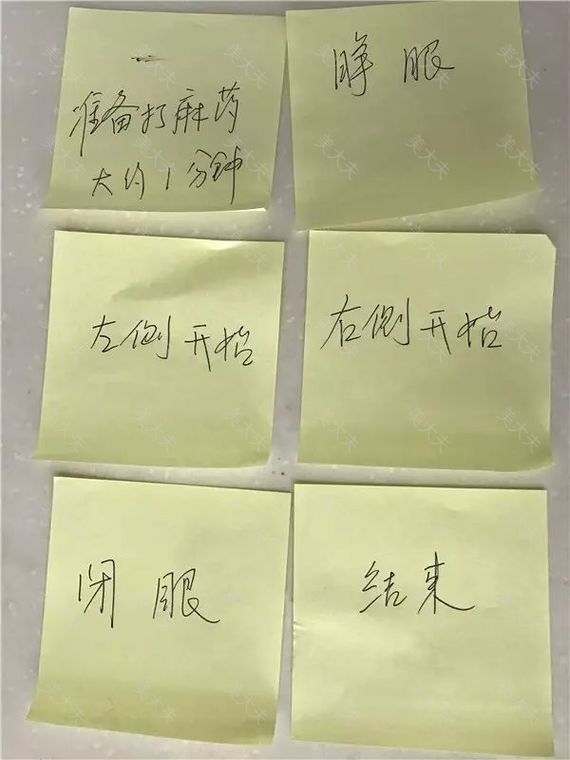 准备打麻药
大约1分钟
睁眼
左侧开始
右侧开始
闭眼
结束
美大夫